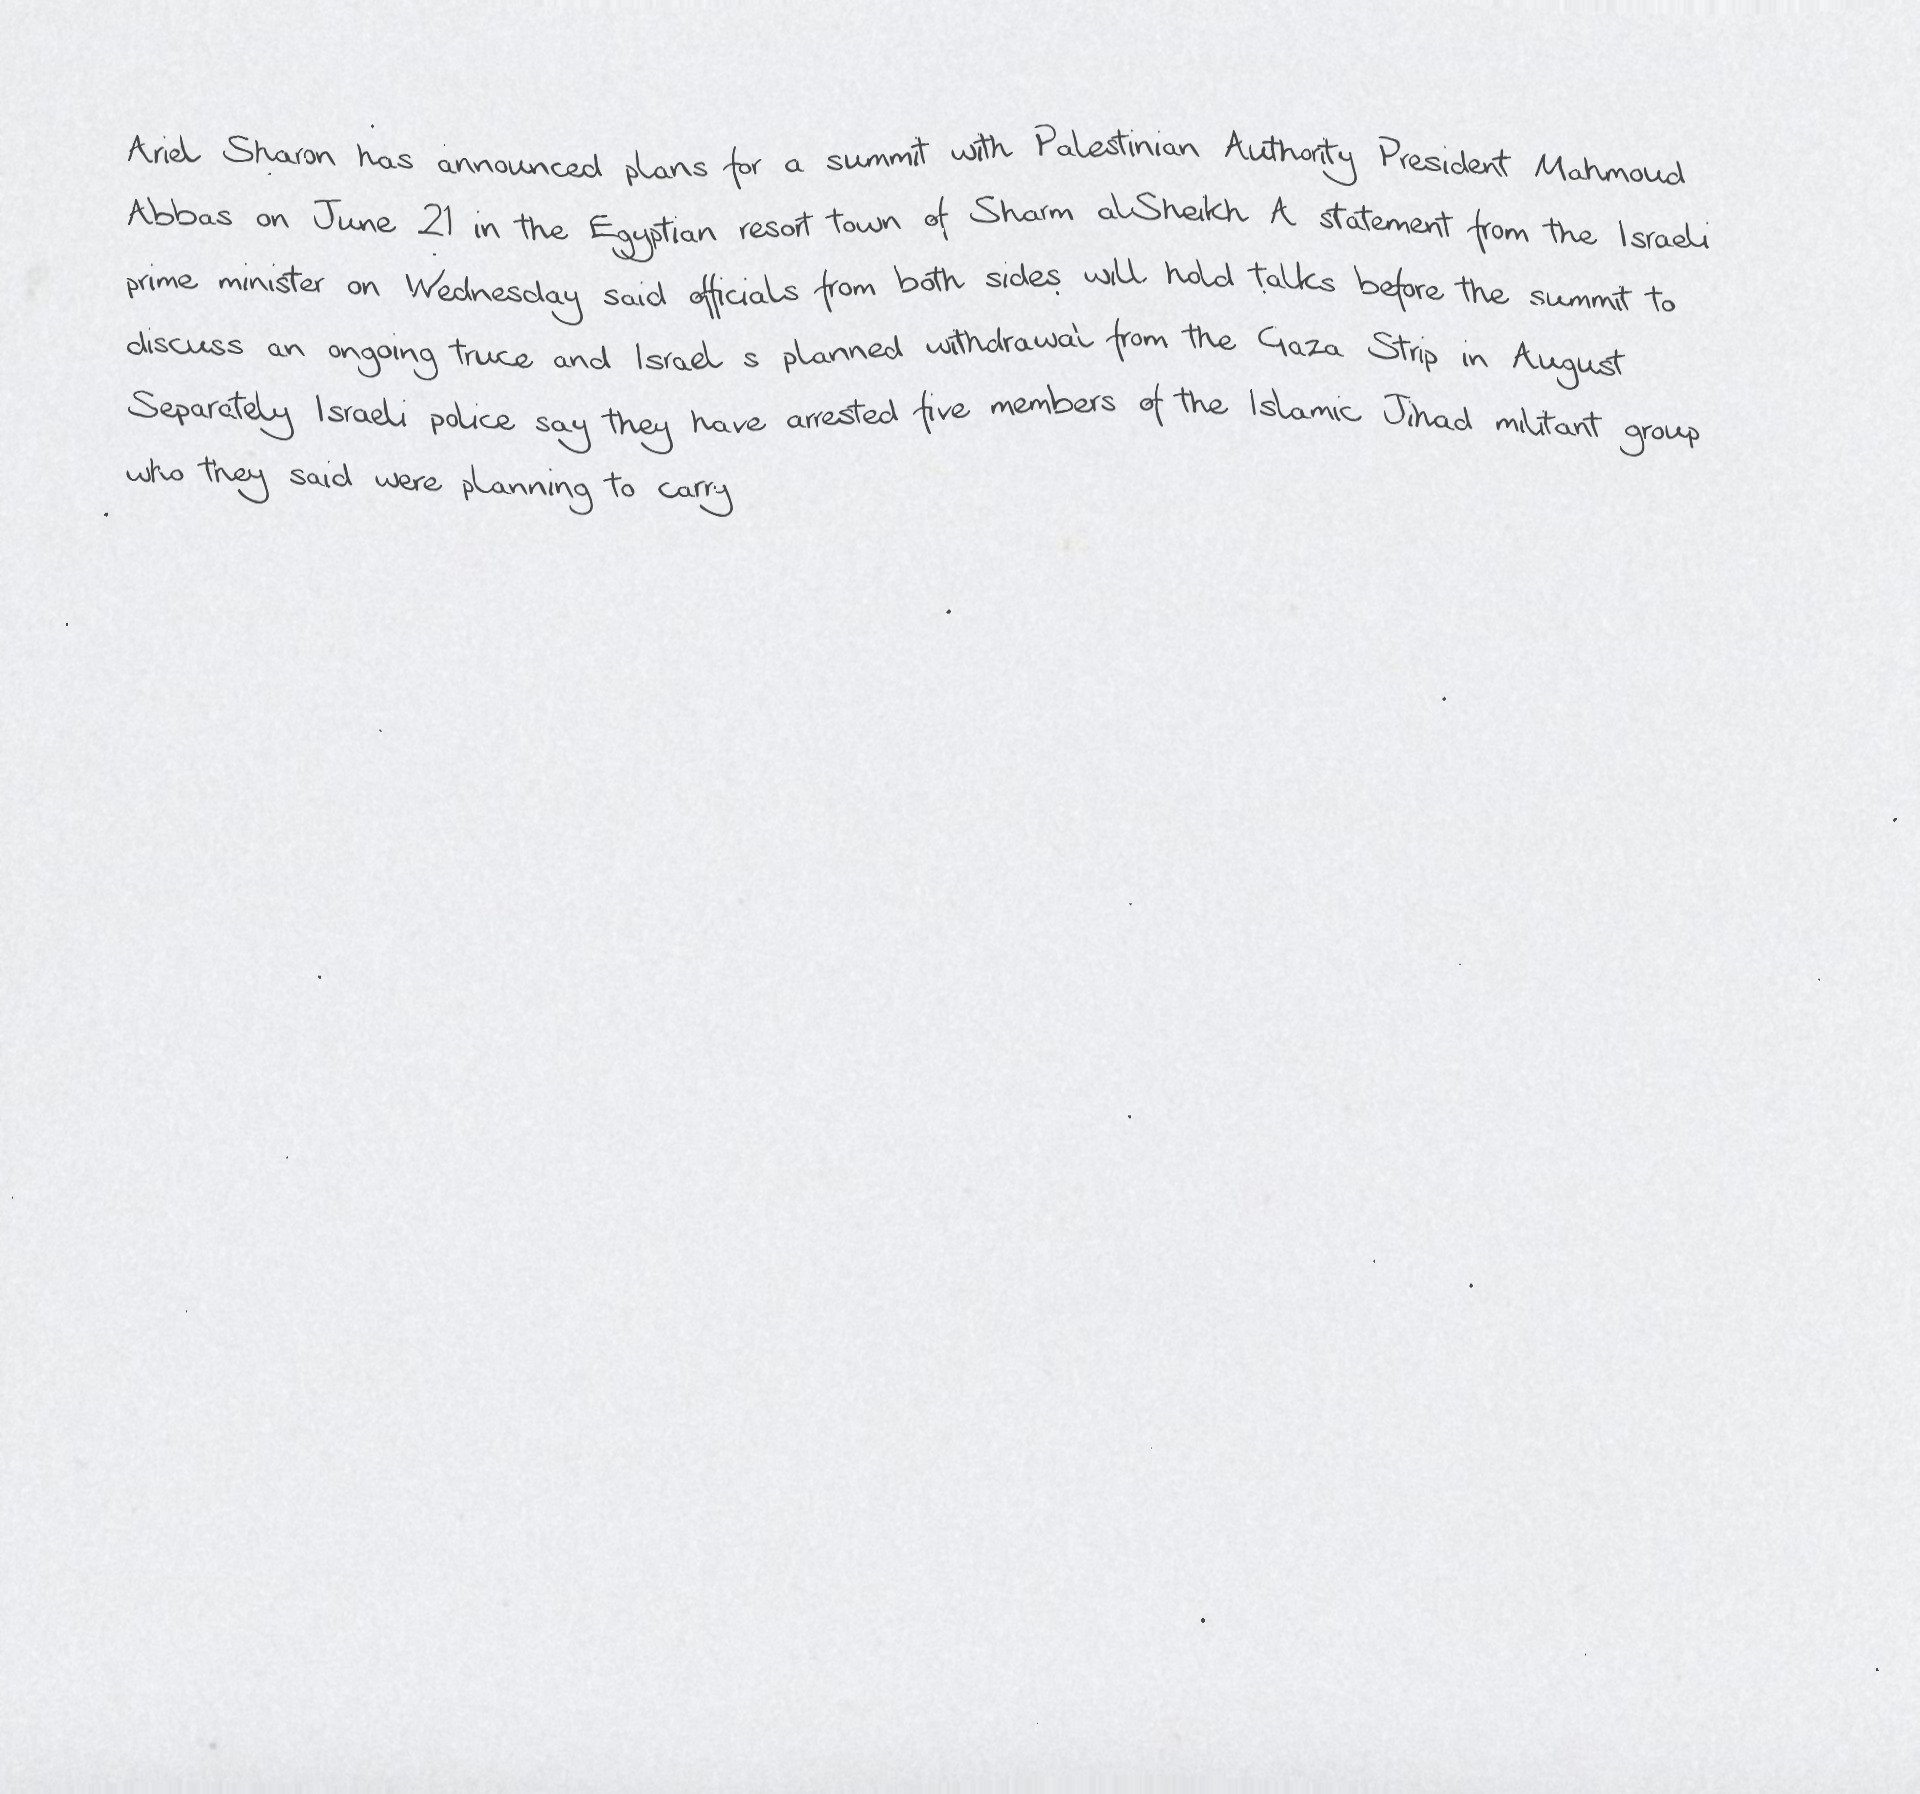 Ariel Sharon has announced plans for a summit with Palestinian Authority President Mahmoud
Abbas on June 21 in the Egyptian resort town of Sharm alSheikh A statement from the Israeli
prime minister on Wednesday said officials from both sides will hold talks before the summit to
discuss an ongoing truce and Israel s planned withdrawal from the Gaza Strip in August
Separately Israeli police say they have arrested five members of the Islamic Jihad militant group
who they said were planning to carry